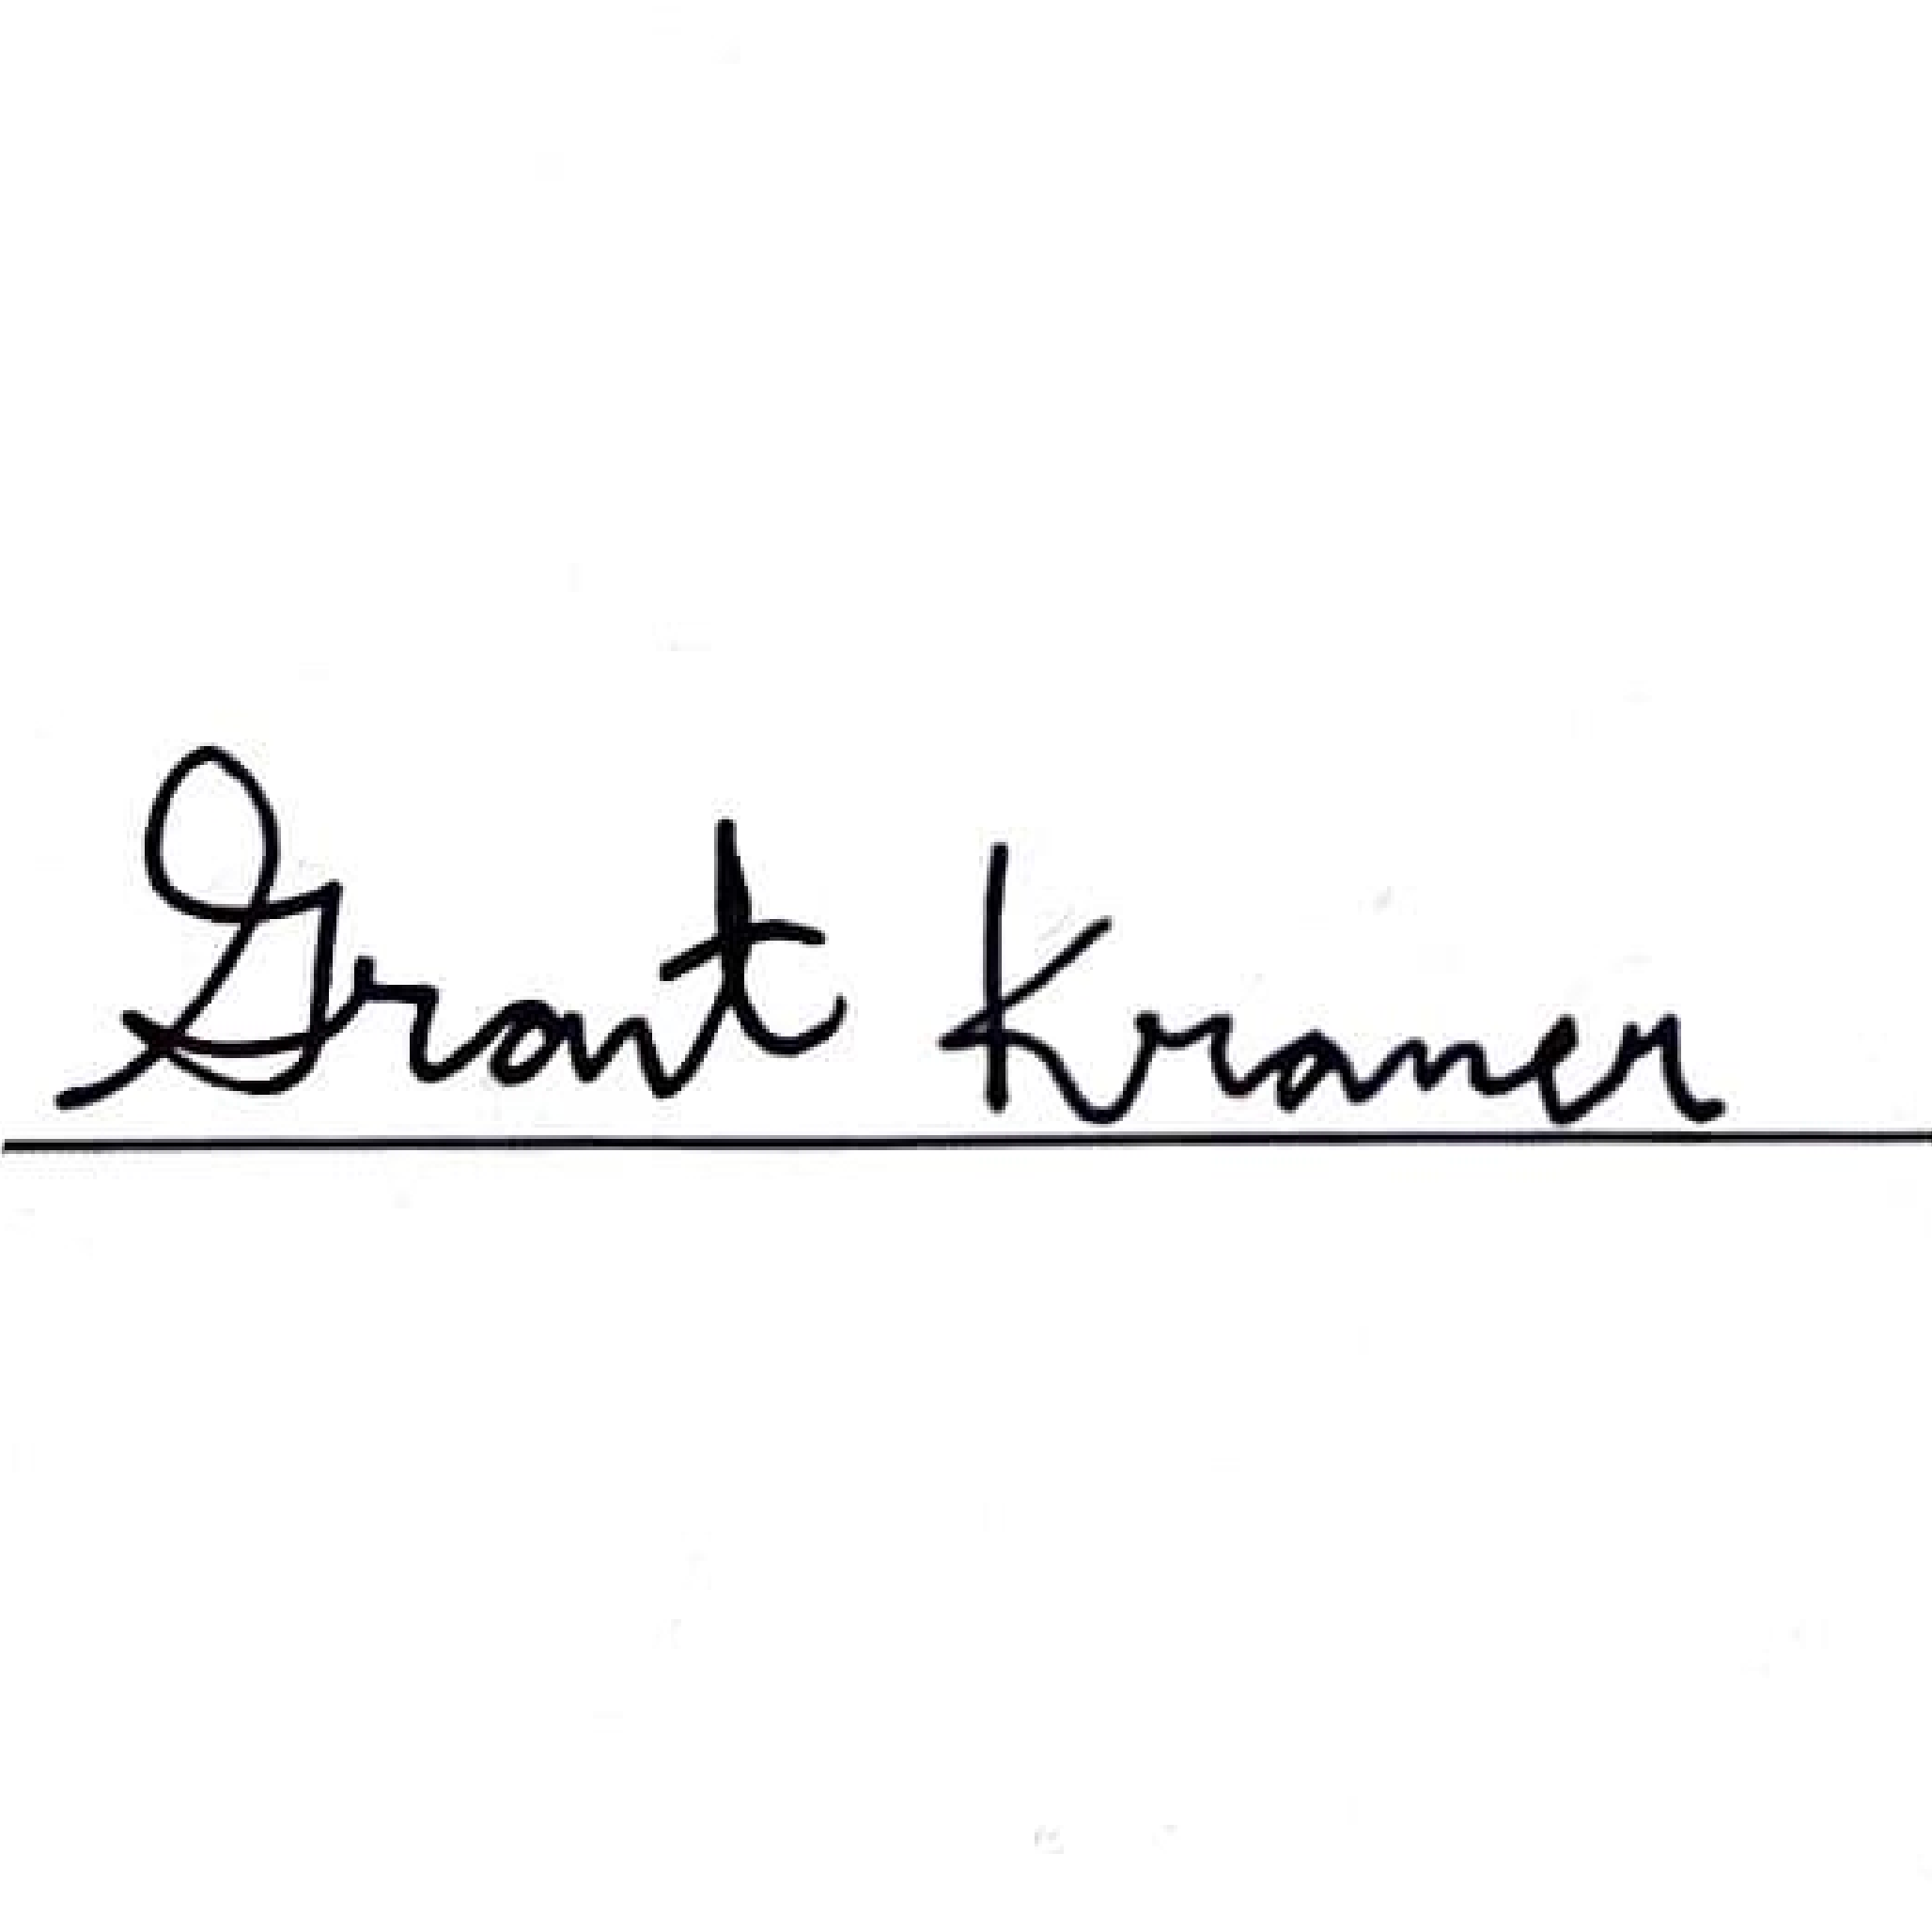 Grant Kraner